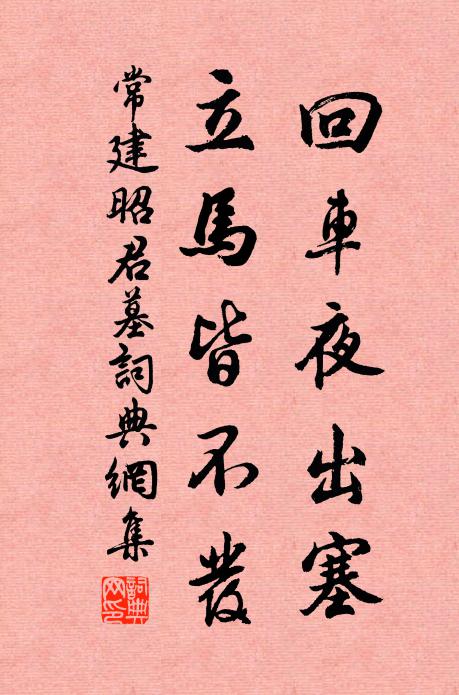 回車夜出塞
立馬皆不發
常建昭君墓詞典網集
詞典網印